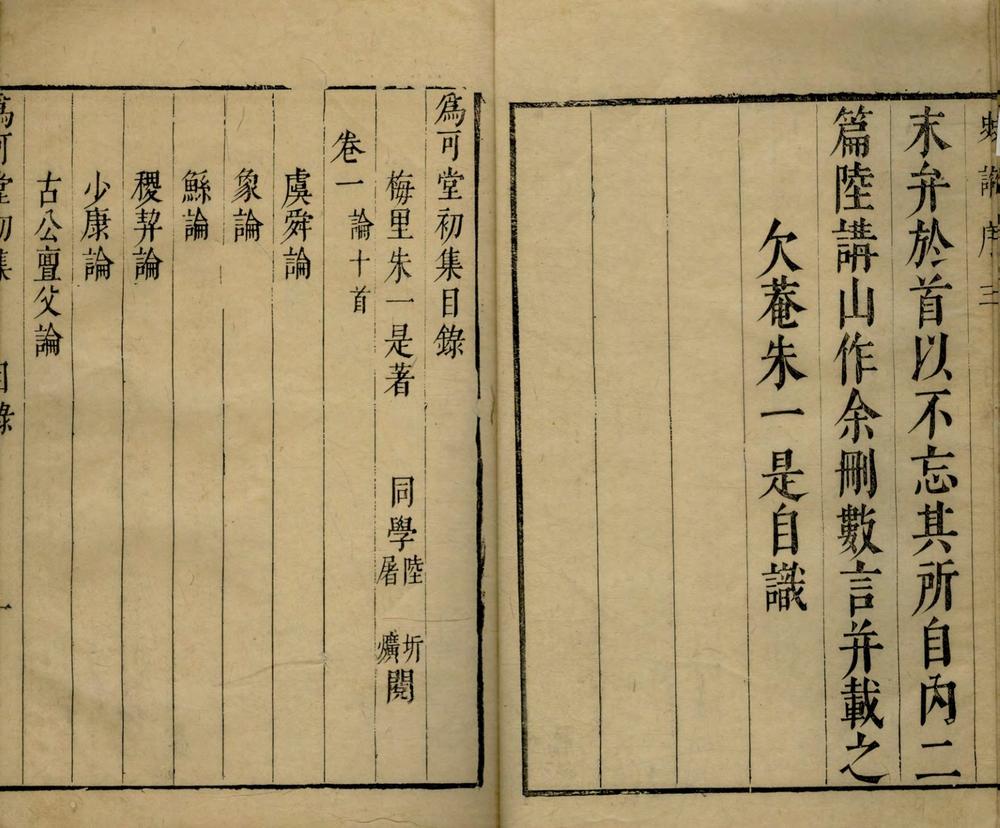 序三
末弁於首以不忘其所自內二
篇陸講山作余刪數言并載之
欠菴朱一是自識
爲可堂初集目錄
梅里朱一是著 同學陸圻屠爌閱
卷一 論十首
虞舜論
象論
鯀論
稷契論
少康論
古公亶父論
爲可堂初集 目錄 一